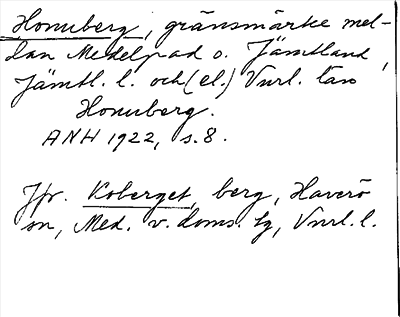 Honuberg, gränsmärke mel-
lan Medelpad o. Jämtland,
Jämtl. l. och (el.) Vnrl. län
Honuberg.
ANH 1922, s. 8.
Jfr. Koberget, berg, Haverö
sn, Med. v. doms. tg, Vnrl. l.